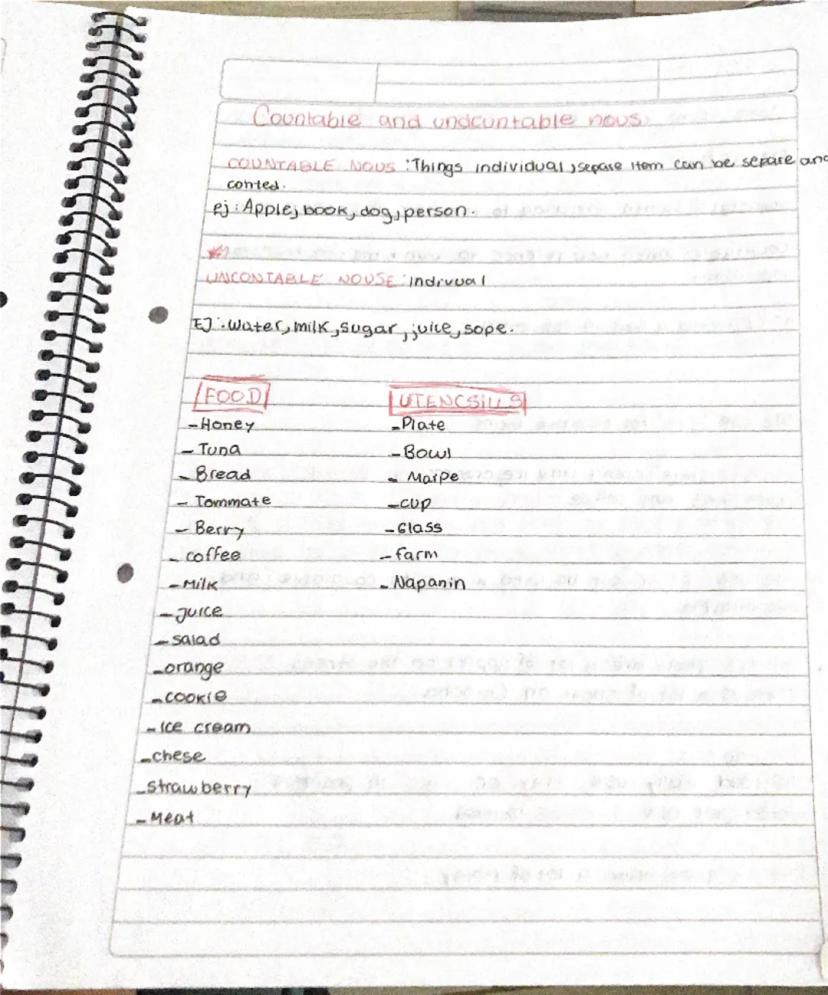 Countable and undcuntable nous.
COUNTABLE NOUS : Things individual, separe item can be separe and
conted.
ej : Apple, book, dog, person.
UNCONTABLE NOUSE : Indivual
EJ : Water, milk, sugar, juice, sope.
FOOD
- Honey
- Tuna
- Bread
- Tommate
- Berry
- coffee
- Milk
- Juice
- salad
- orange
- cookie
- Ice cream
- chese
- strawberry
- Meat
UTENCSILLS
- Plate
- Bowl
- Maipe
- cup
- Glass
- farm
- Napanin